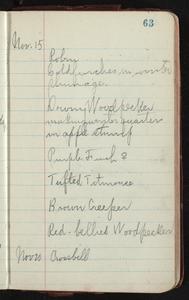 63
Nov. 15
Robin
Goldfinches in winter
plumage.
Downy Woodpecker
making winter quarters
in apple stump
Purple Finch 2
Tufted Titmouse
Brown Creeper
Red-bellied Woodpecker
Nov 20 Crossbill